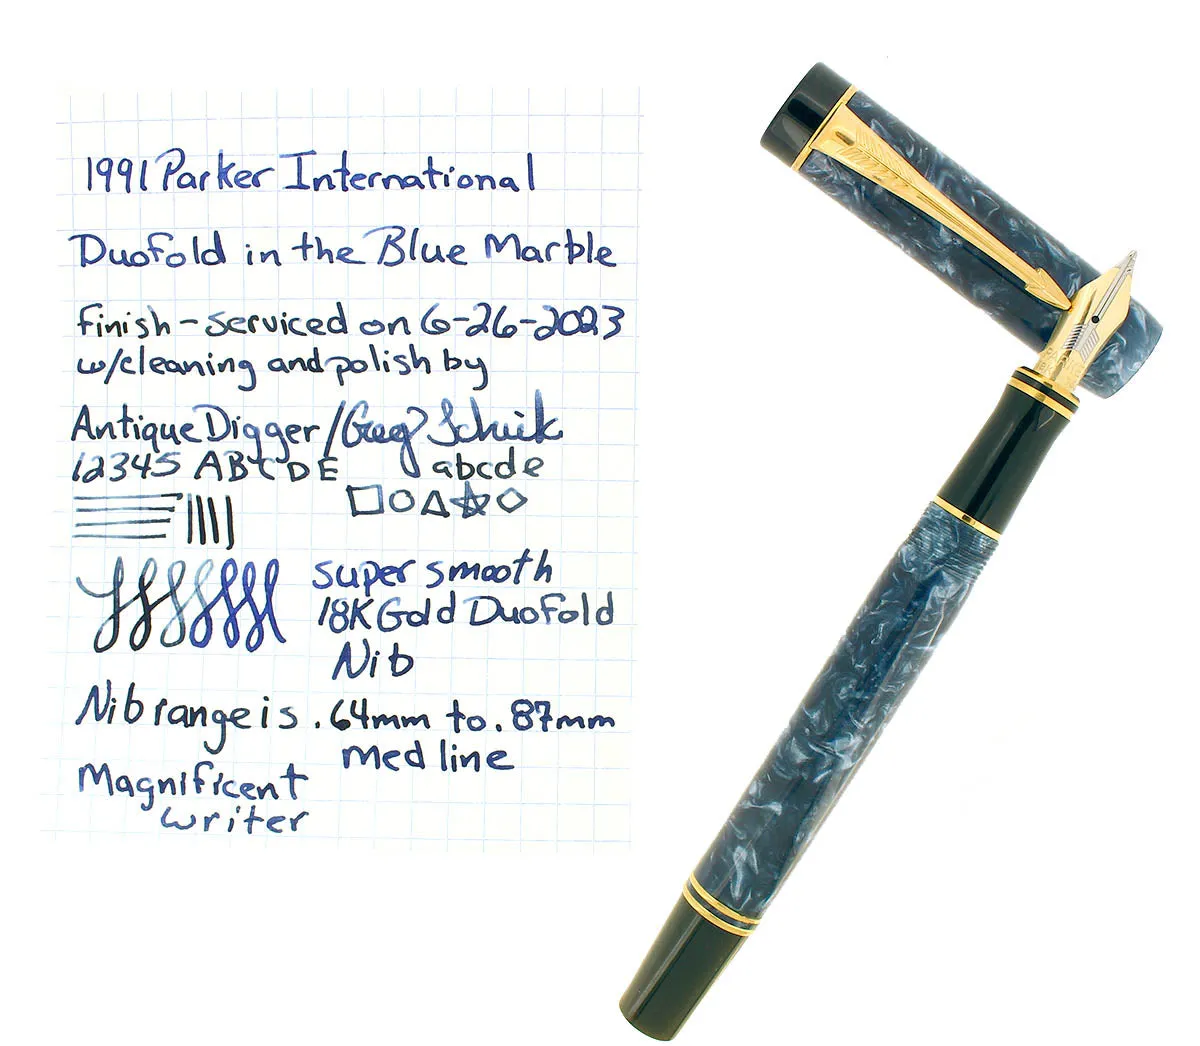 1991 Parker International
Duofold in the Blue Marble
finish - serviced on 6-26-2023
w/cleaning and polish by
Antique Digger/Greg Schick
12345 ABCDE abcde
super smooth
18K Gold Duofold
Nib
Nib range is .64mm to .87mm
med line
Magnificent
writer